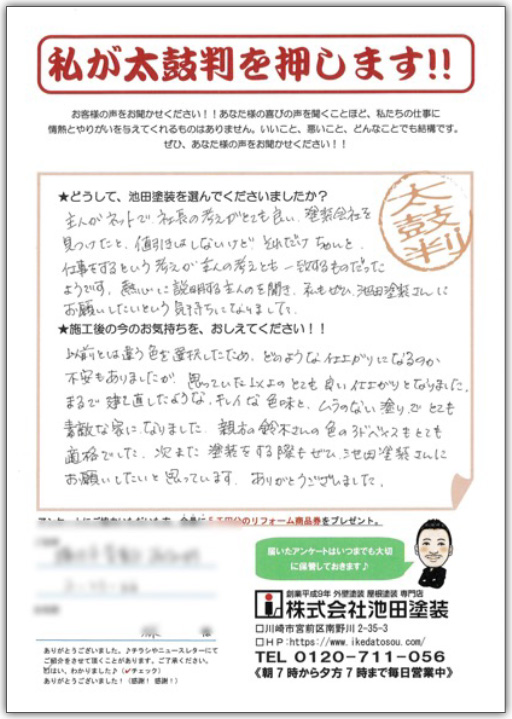 私が太鼓判を押します!!
お客様の声をお聞かせください！！あなた様の喜びの声を聞くことほど、私たちの仕事に
情熱とやりがいを与えてくれるものはありません。いいこと、悪いこと、どんなことでも結構です。
ぜひ、あなた様の声をお聞かせください！！
太鼓判
★どうして、池田塗装を選んでくださいましたか？
主人がネットで、社長の考えがとても良い、塗装会社を
見つけたと、値引きはしないけど それだけ ちゃんと、
仕事をするという考えが主人の考えとも一致するものだった
ようです。熱心に説明する主人のを聞き、私もぜひ、池田塗装さんに
お願いしたいという気持ちになりまして。
★施工後の今のお気持ちを、おしえてください！！
以前とは違う色を選択したため、どのような仕上がりになるのか
不安もありましたが、思っていた以上のとても良い仕上がりとなりました。
まるで建て直したような、キレイな色味と、ムラのない塗りでとても
素敵な家になりました。親方の鈴木さんの色のアドバイスもとても
適格でした。次また塗装をする際もぜひ、池田塗装さんに
お願いしたいと思っています。ありがとうございました。
のリフォーム商品券をプレゼント。
届いたアンケートはいつまでも大切
に保管しておきます♪
創業平成9年 外壁塗装 屋根塗装 専門店
株式会社池田塗装
□川崎市宮前区南野川 2-35-3
□HP:https://www.ikedatosou.com/
TEL 0120-711-056
《朝7時から夕方7時まで毎日営業中》
様
ありがとうございました。♪チラシやニュースレターにて
ご紹介をさせて頂くことがあります。ご了承ください。
はい、わかりました♪（✓チェック）
ありがとうございました！（感謝！感謝！）